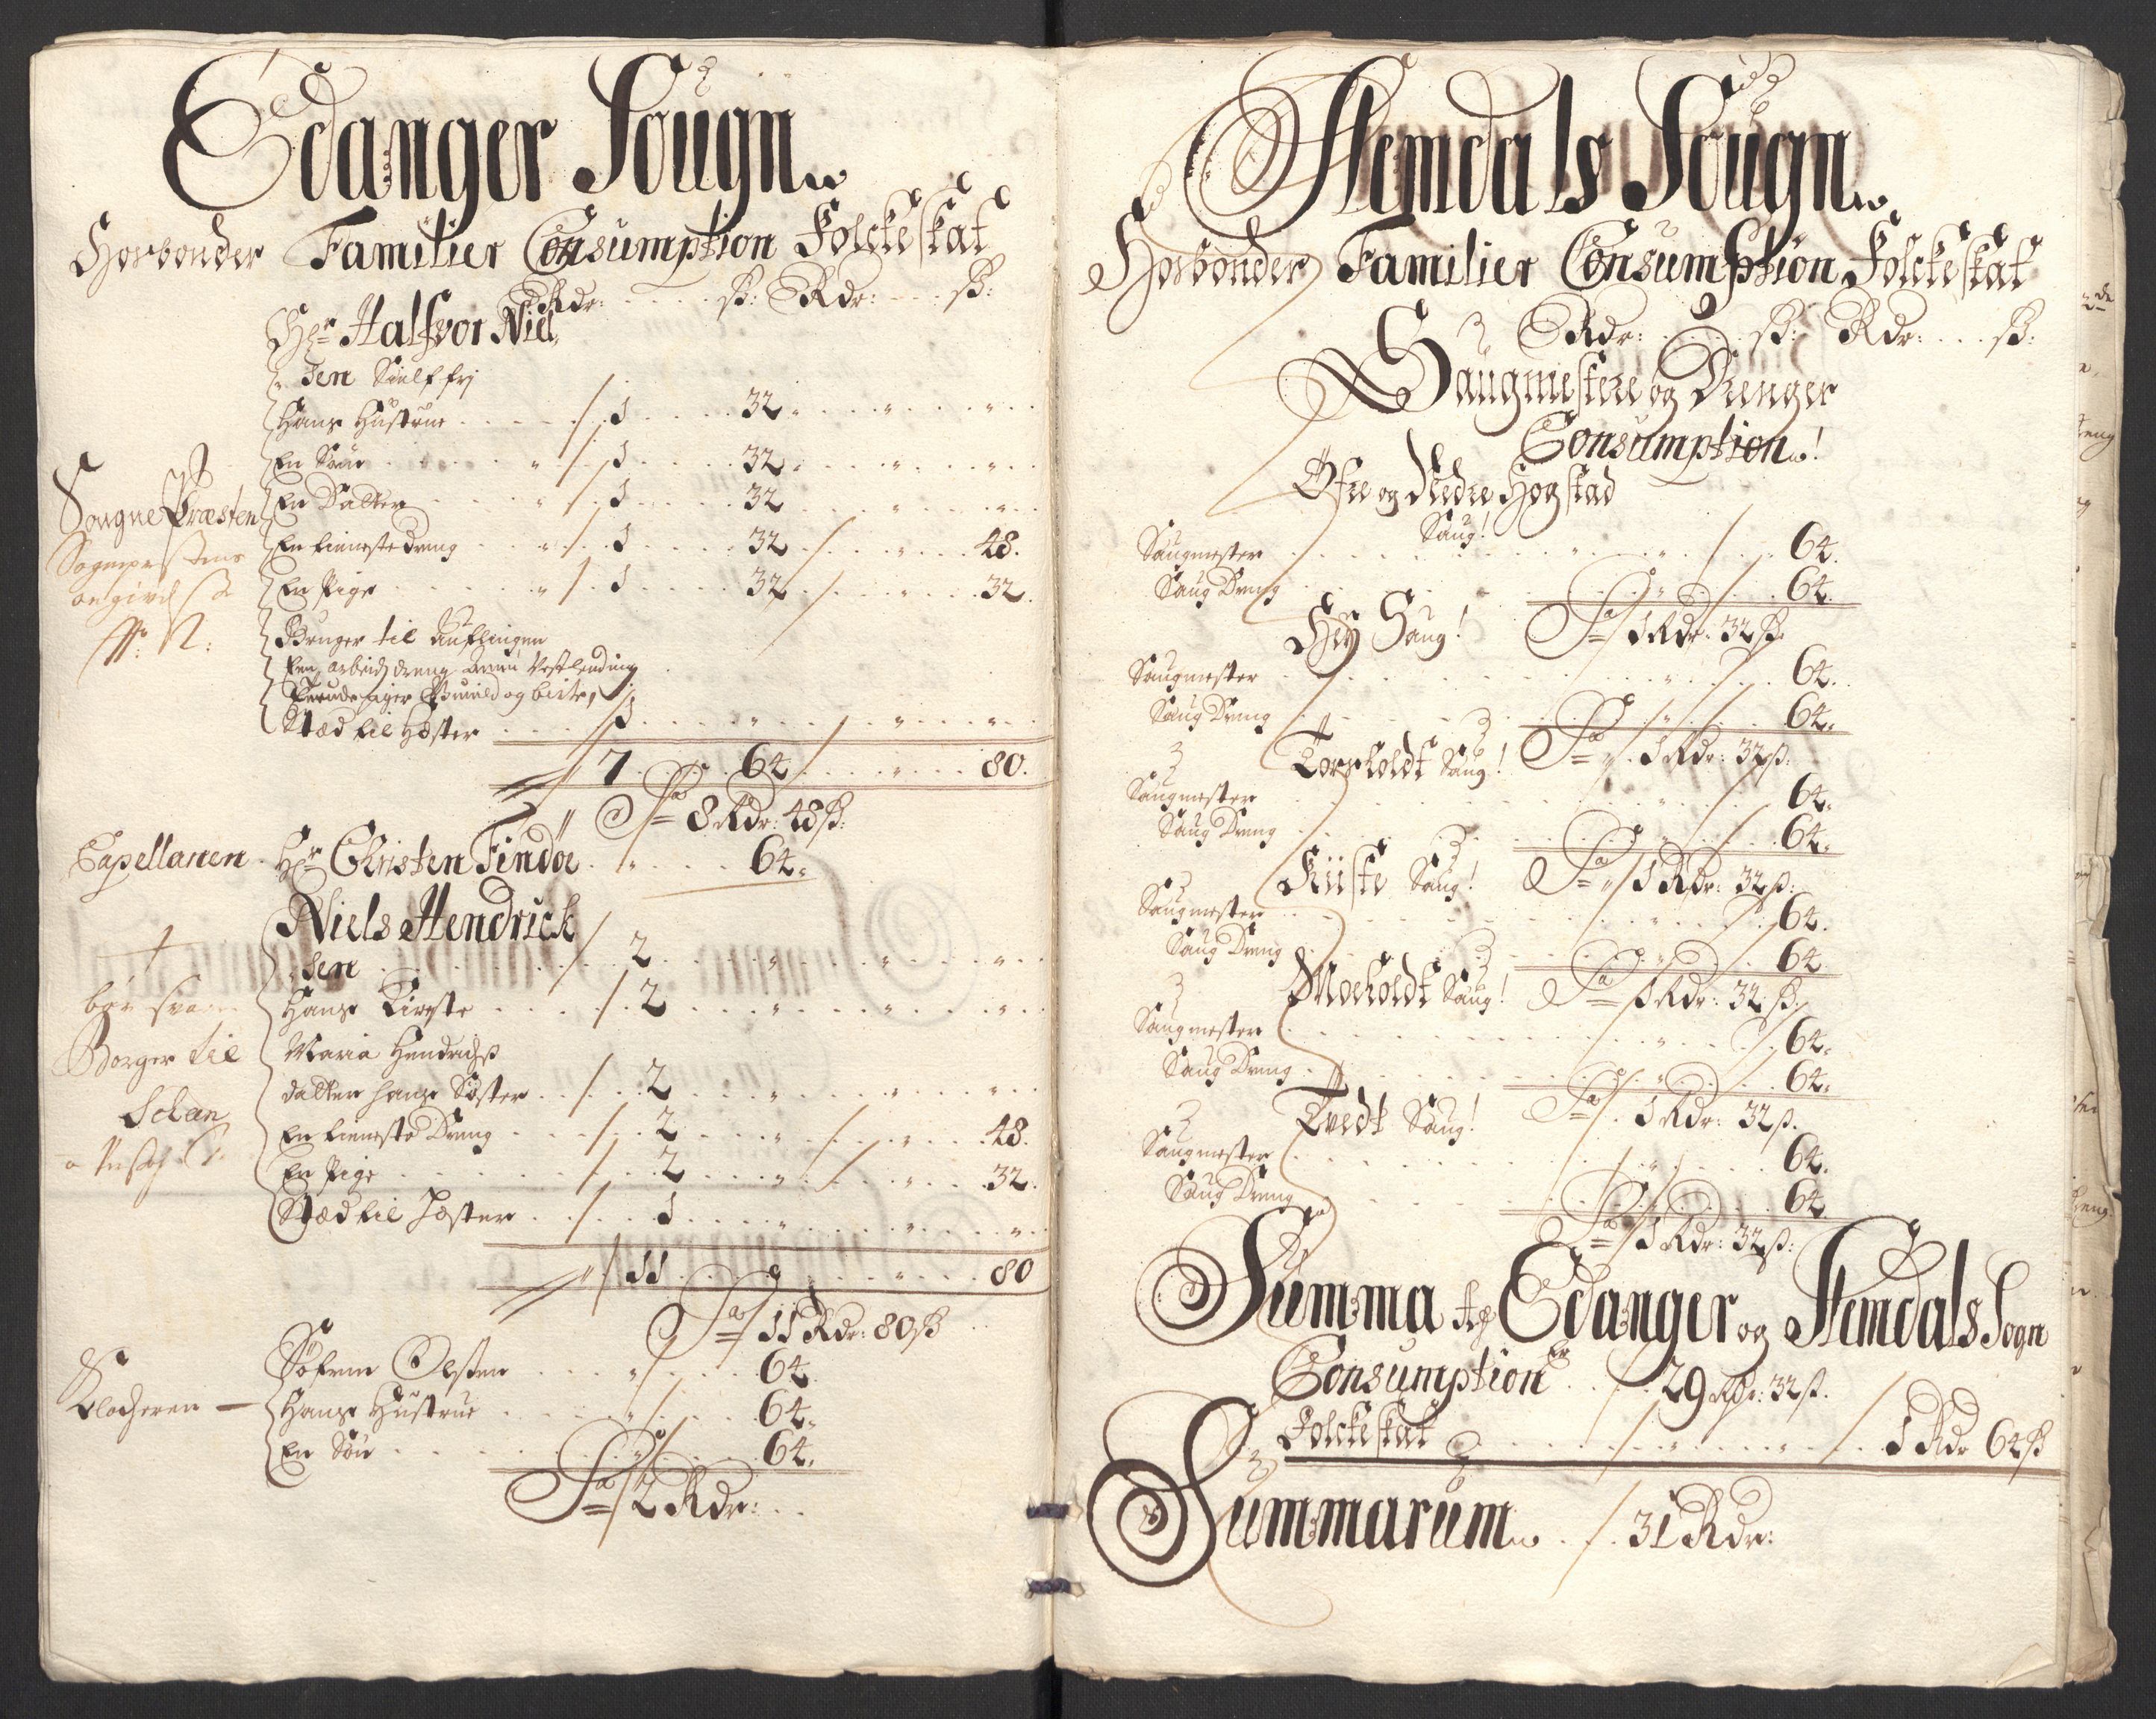 Edanger Sougn
Hosbonder Familier Consumption Folckeskat
Rdr: ß: Rdr: ß:
Hr Halfvor Niel
sen Siielf frj
Hans Hustrue 1 32
En Sön 1 32
En Datter 1 32
Sougne Præsten
En tieneste dreng 1 32 48.
Sogneprestens
angivelse
En Pige 1 32 32.
Bruger til
Een arbeids dreng
og
Stæd til Hester 1
7 64 80.
Sa 8 Rdr: 48 ß:
Capellanen Hr Christen Findöe 64.
Niels Hendrick
sen 2
Hans Kieste 2
Borger til
Maria Hendrichs
datter hans Söster 2
Scheen
En tieneste Dreng 2 48.
En Pige 2 32.
Stæd til Hester 1
11 80
Sa 11 Rdr: 80 ß
Söfren Olsen 64.
Klocheren — Hans Hustrue 64.
En Sön 64.
Sa 2 Rdr:
Hemdals Sougn
Hosbonder Familier Consumption Folckeskat
Rdr: ß: Rdr: ß:
Saugmestere og Drenger
Consumption!
Öfre og Nedre Hogstad
Saug!
Saugmester 64.
Saug Dreng 64.
Sa 1 Rdr: 32 ß.
Hej Saug!
Saugmester 64.
Saug Dreng 64.
Sa 1 Rdr: 32 ß.
Torsholdt Saug!
Saugmester 64.
Saug Dreng 64.
Sa 1 Rdr: 32 ß:
Kiiste Saug!
Saugmester 64.
Saug Dreng 64
Sa 1 Rdr: 32 ß.
Moeholdt Saug!
Saugmester 64.
Saug Dreng 64.
Sa 1 Rdr: 32 ß.
Tvedt Saug!
Saugmester 64.
Saug Dreng 64.
Sa 1 Rdr: 32 ß:
Summa Af Edanger og Hemdals Sogn
Consumption Er 29 Rdr: 32 ß.
Folckeskat 1 Rdr 64 ß
Summarum 31 Rdr: